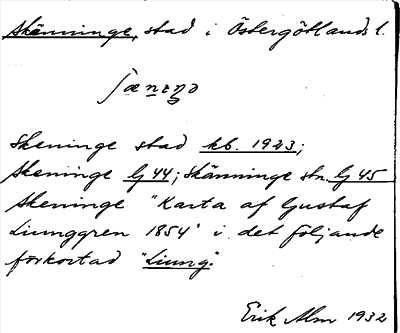 Skänninge, stad i Östergötlands l.
Skeninge stad kb. 1923;
Skeninge Lj 44; Skänninge stn. Lj 45
Skeninge "Karta af Gustaf
Ljunggren 1854" i det följande
förkortad "Ljung."
Erik Alm 1932